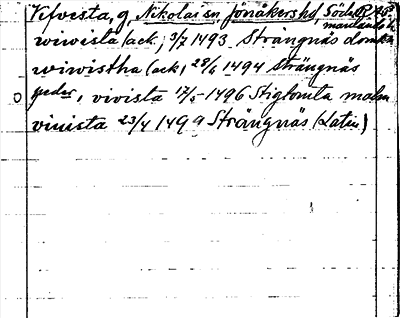 Vifvesta, g Nikolai sn, Jönåkers hd, Söde
wiwista (ack., 3/7 1493 Strängnäs domk
wiwistha (ack) 28/6 1494 Strängnäs
peder, vivista 17/5 1496 Stigtomta malm
vinista 23/4 1499 Strängnäs (Latin)